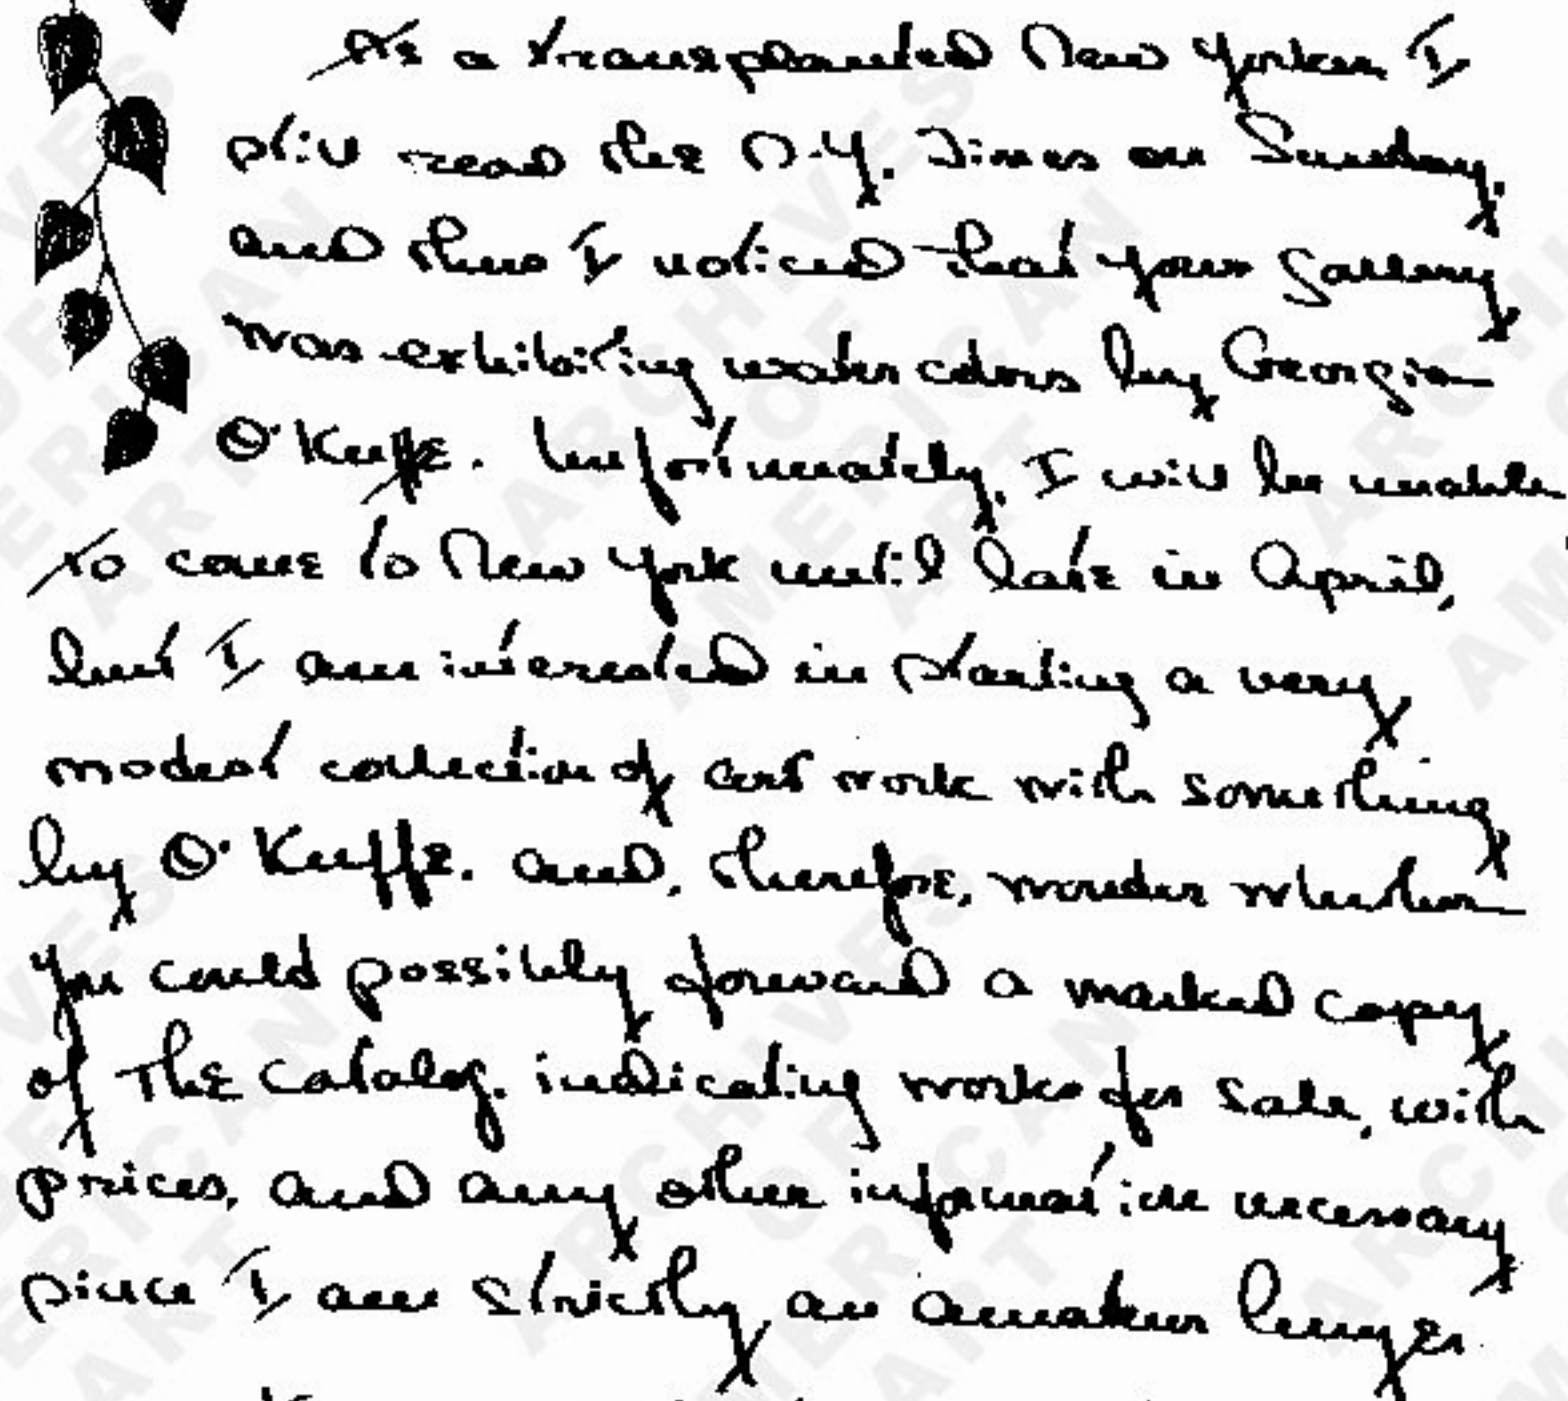 As a transplanted New Yorker I
still read the N.Y. Times on Sunday,
and thus I noticed that your Gallery
was exhibiting water colors by Georgia
O'Keffe. Unfortunately, I will be unable
to come to New York until late in April,
but I am interested in starting a very
modest collection of art work with something
by O'Keffe. and, therefore, wonder whether
you could possibly forward a marked copy
of The catalog, indicating works for sale, with
prices, and any other information necessary
since I am strictly an amateur buyer